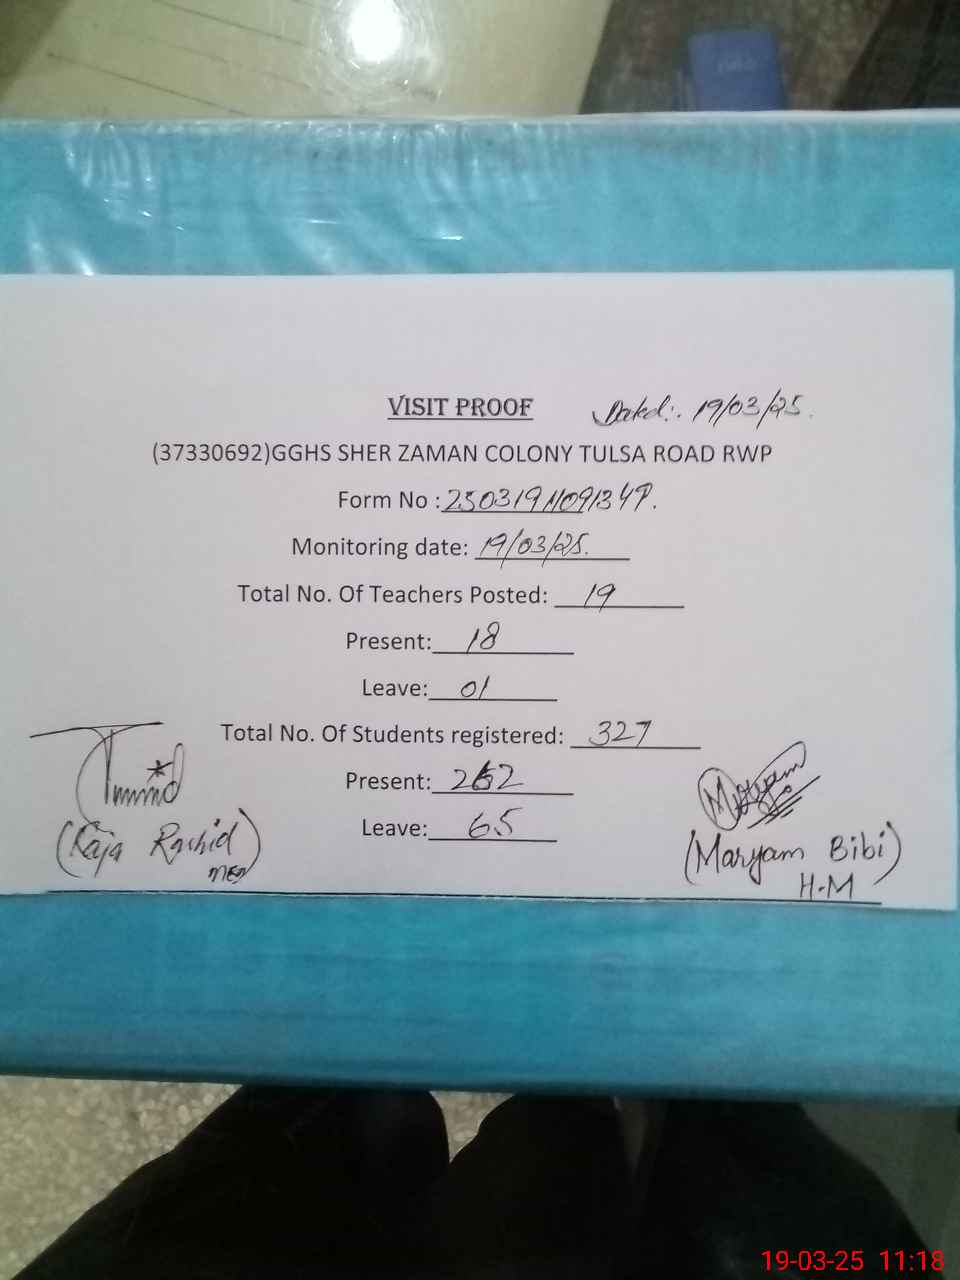 VISIT PROOF Dated:. 19/03/25.
(37330692)GGHS SHER ZAMAN COLONY TULSA ROAD RWP
Form No :
Monitoring date: 19/03/25.
Total No. Of Teachers Posted: 19
Present: 18
Leave: 01
Total No. Of Students registered: 327
Present: 262
Leave: 65
(Raja Rashid)
MEA
Maryam
(Maryam Bibi)
H.M
19-03-25 11:18